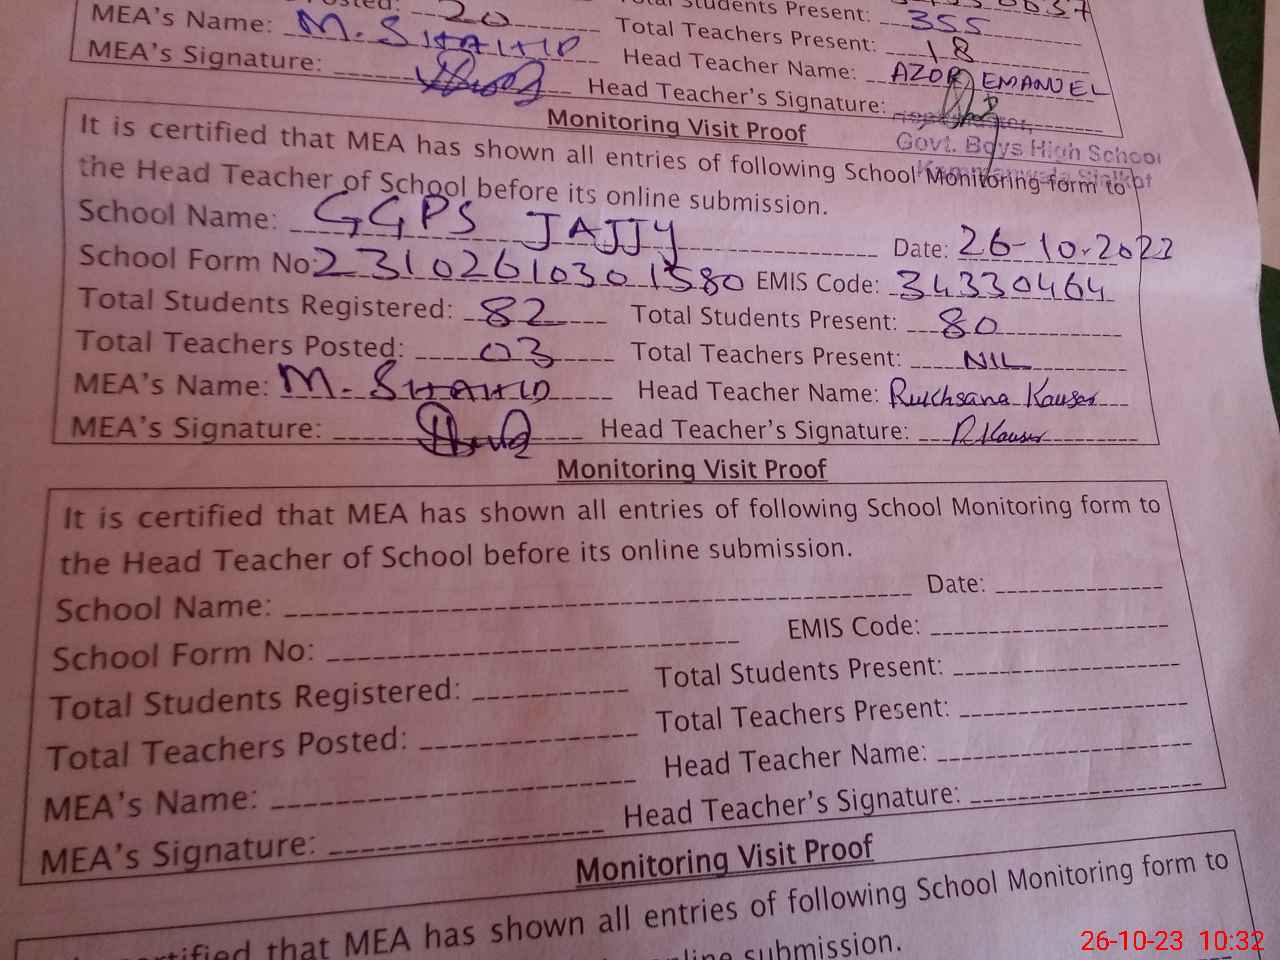 Posted: 20 Total Students Present: 355
MEA's Name: M. SHAHID Total Teachers Present: 18
MEA's Signature: Head Teacher Name: AZOR EMANUEL
Head Teacher's Signature:
Monitoring Visit Proof
Govt. Boys High School
Sialkot
It is certified that MEA has shown all entries of following School Monitoring form to
the Head Teacher of School before its online submission.
School Name: GGPS JAJJY Date: 26-10-2023
School Form No: 23102610301580 EMIS Code: 34330464
Total Students Registered: 82 Total Students Present: 80
Total Teachers Posted: 03 Total Teachers Present: NIL
MEA's Name: M. SHAHID Head Teacher Name: Rukhsana Kauser
MEA's Signature: Head Teacher's Signature: R Kauser
Monitoring Visit Proof
It is certified that MEA has shown all entries of following School Monitoring form to
the Head Teacher of School before its online submission.
School Name: Date:
School Form No: EMIS Code:
Total Students Registered: Total Students Present:
Total Teachers Posted: Total Teachers Present:
MEA's Name: Head Teacher Name:
MEA's Signature: Head Teacher's Signature:
Monitoring Visit Proof
certified that MEA has shown all entries of following School Monitoring form to
online submission.
26-10-23 10:32